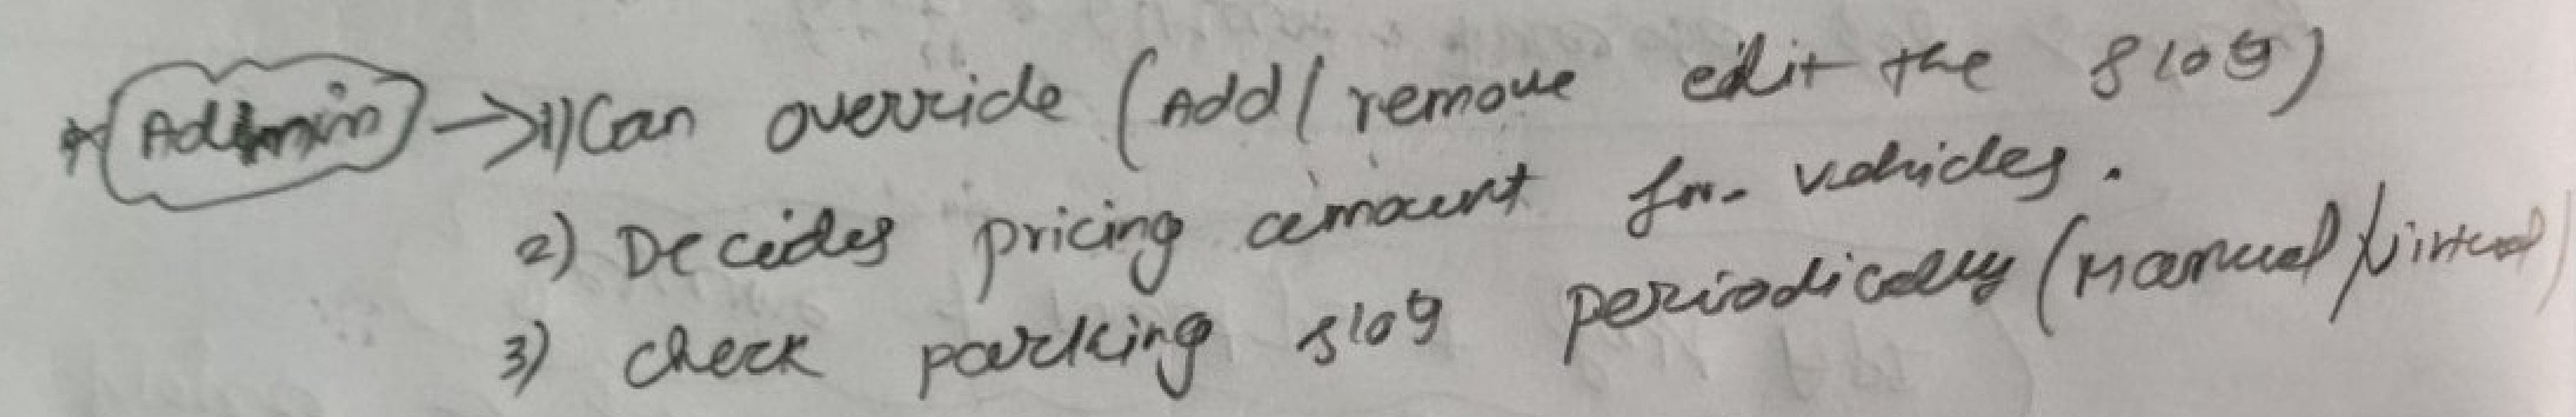 * Admin → 1) Can override (Add/remove edit the slots)
2) Decides pricing amount for vehicles.
3) check parking slots periodically (Manual/Virtual)